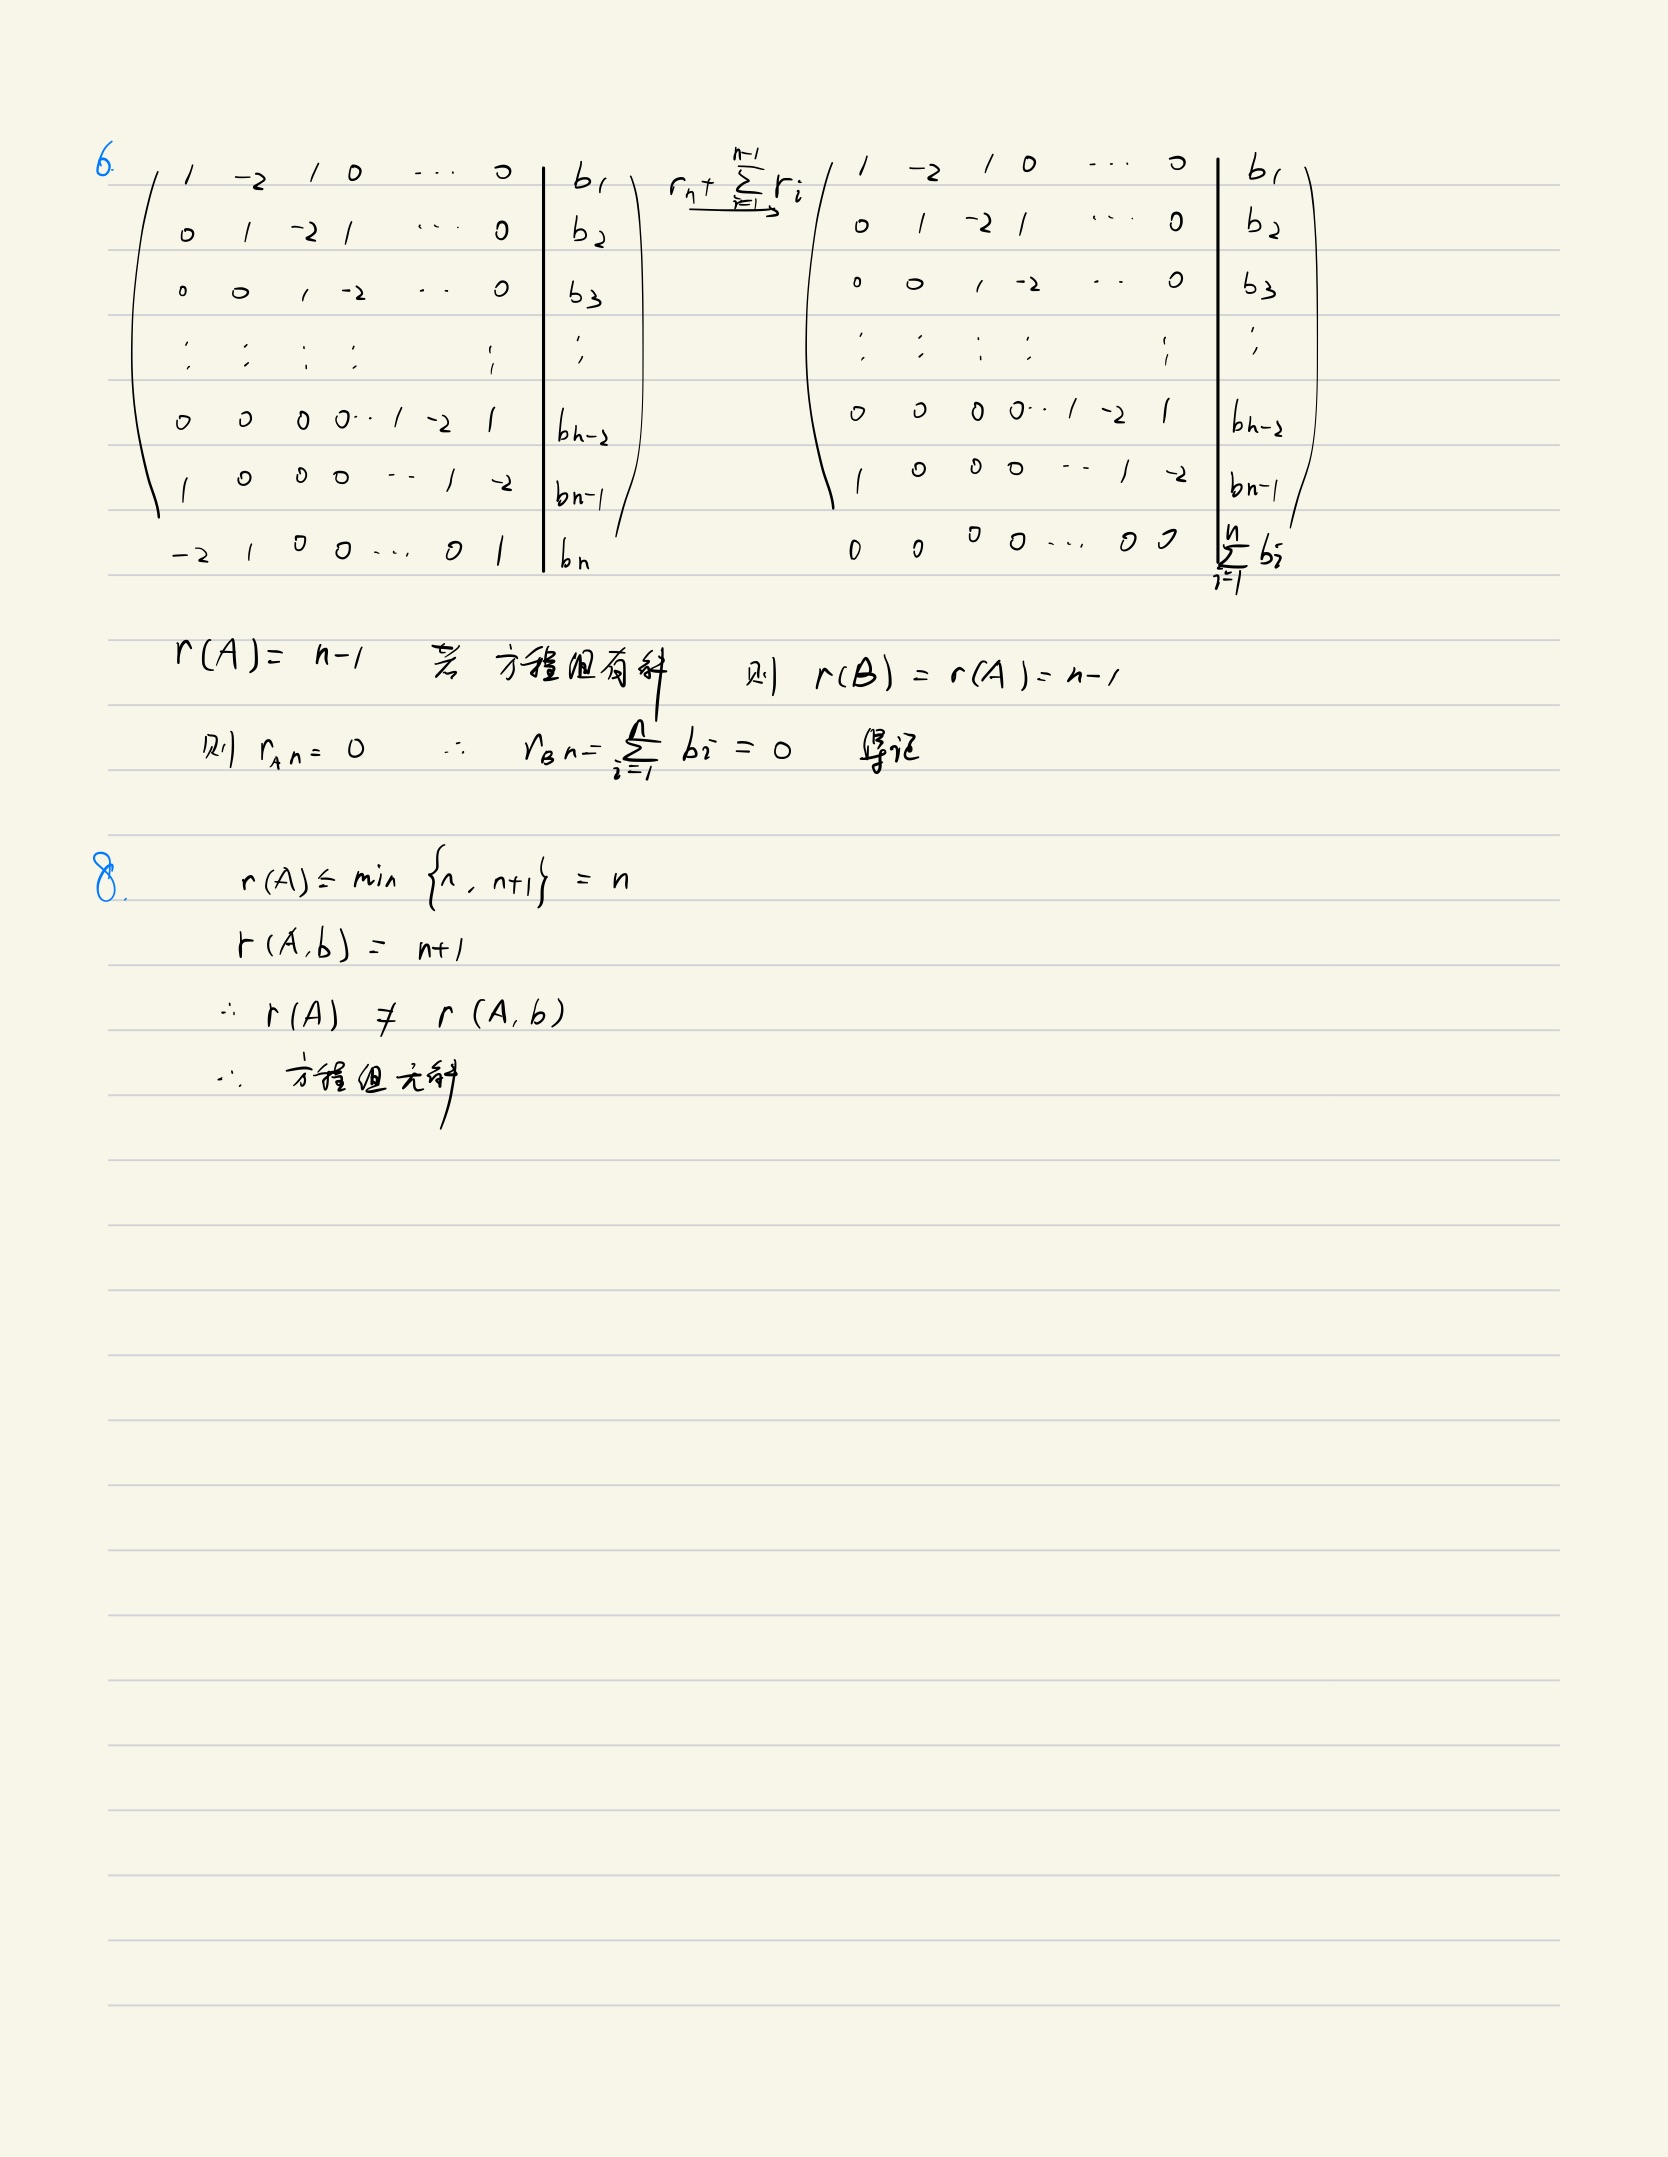 6.
1 -2 1 0 ··· 0 | b₁
0 1 -2 1 ··· 0 | b₂
0 0 1 -2 ·· 0 | b₃
⋮ ⋮ ⋮ ⋮ ⋮ | ⋮
0 0 0 0 ·· 1 -2 1 | bn-2
1 0 0 0 ·· 1 -2 | bn-1
-2 1 0 0 ··· 0 1 | bn
rn + ∑_{i=1}^{n-1} ri
1 -2 1 0 ··· 0 | b₁
0 1 -2 1 ··· 0 | b₂
0 0 1 -2 ·· 0 | b₃
⋮ ⋮ ⋮ ⋮ ⋮ | ⋮
0 0 0 0 ·· 1 -2 1 | bn-2
1 0 0 0 ·· 1 -2 | bn-1
0 0 0 0 ··· 0 0 | ∑_{i=1}^{n} bi
r(A) = n-1 若 方程组有解 则 r(B) = r(A) = n-1
则 r_A n = 0 ∴ r_B n = ∑_{i=1}^{n} bi = 0 得证
8. r(A) ≤ min {n, n+1} = n
r(A,b) = n+1
∴ r(A) ≠ r(A,b)
∴ 方程组无解